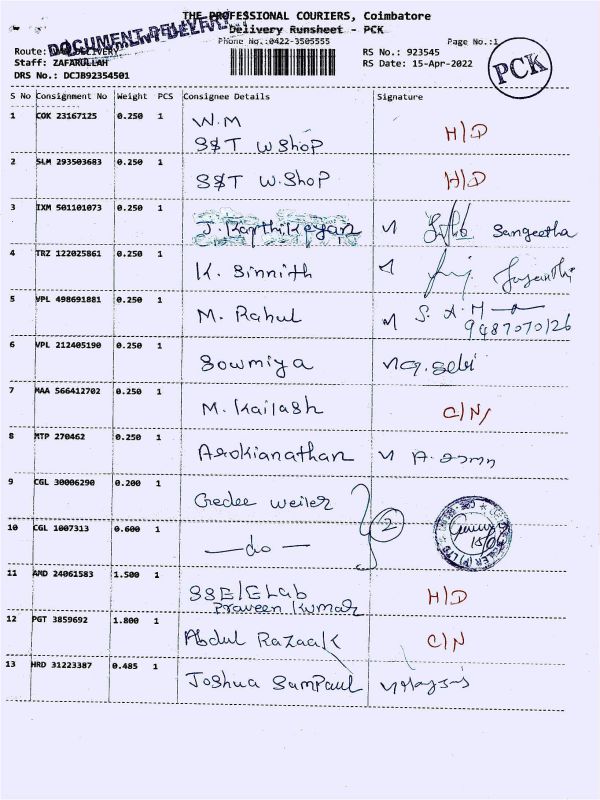 THE PROFESSIONAL COURIERS, Coimbatore
Delivery Runsheet - PCK
DOCUMENT DELIVERY
Phone No.:0422-3505555
Page No.:1
Route: DELIVERY
RS No.: 923545
Staff: ZAFARULLAH
RS Date: 15-Apr-2022
PCK
DRS No.: DCJB92354501
S No Consignment No Weight PCS Consignee Details Signature
1 COK 23167125 0.250 1 W.M
S&T W Shop H/D
2 SLM 293503683 0.250 1 S&T W.Shop H/D
3 IXM 501101073 0.250 1 J. Karthikeyan Sangeetha
4 TRZ 122025861 0.250 1 K. Sinnith Jayanthi
5 VPL 498691881 0.250 1 M. Rahul S. A. M
9487070126
6 VPL 212405190 0.250 1 Sowmiya
7 MAA 566412702 0.250 1 M. Kailash C/N
8 MTP 270462 0.250 1 Arokianathan A.
9 CGL 30006290 0.200 1 Gedee Weiler 2
10 CGL 1007313 0.600 1 — do —
11 AMD 24061583 1.500 1 SSE/E Lab
Praveen Kumar H/D
12 PGT 3859692 1.800 1 Abdul Razaak C/N
13 HRD 31223387 0.485 1 Joshua Sampaul